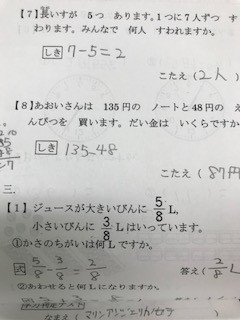 【7】長いすが 5つ あります。1つに7人ずつ す
わります。みんなで 何人 すわれますか。
しき 7-5=2
こたえ (2人
【8】あおいさんは 135円の ノートと48円の え
んぴつを 買います。だい金は いくらですか
しき 135-48
こたえ (87円
三.
【1】ジュースが大きいびんに 5/8 L,
小さいびんに 3/8 Lはいっています。
①かさのちがいは何Lですか。
式 5/8-3/8=2/8
答え( 2/8 L
②あわせると何Lになりますか。
なまえ(マリンアンジェリん/セラ